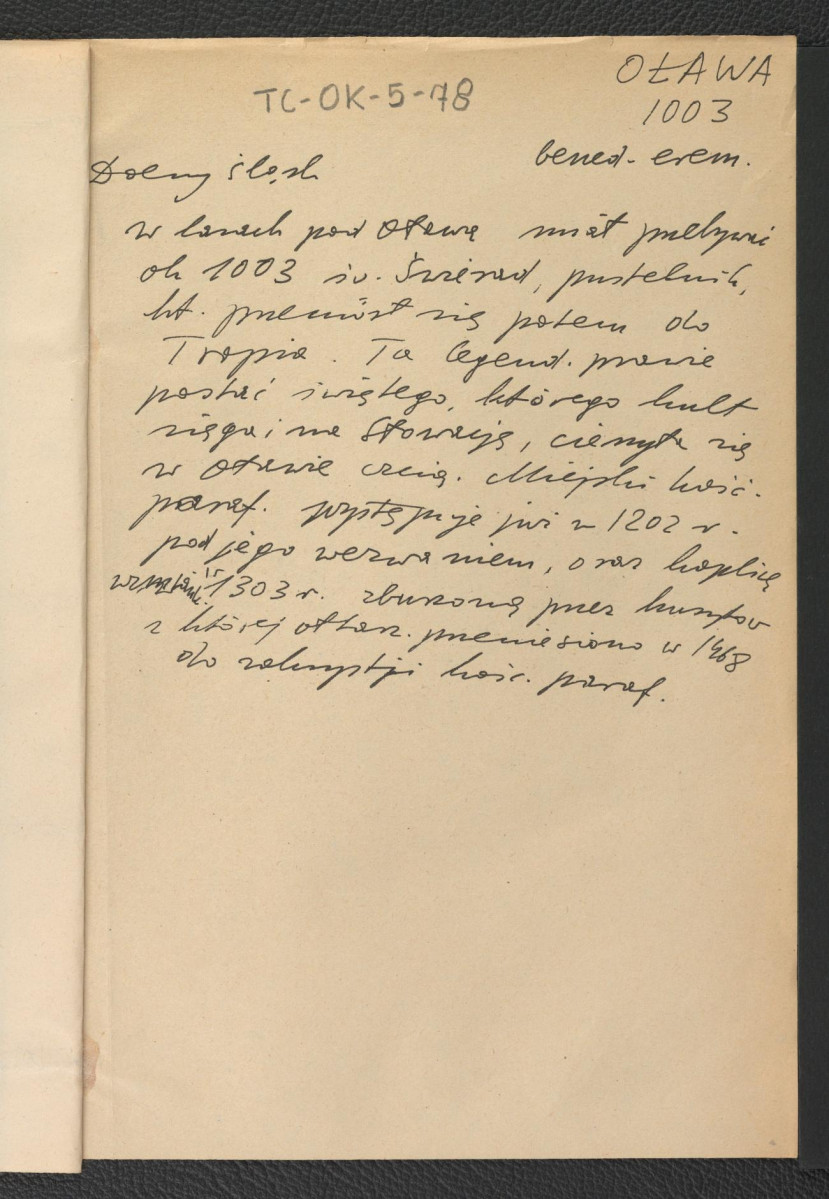 TC-OK-5-78
OŁAWA
1003
bened. erem.
Dolny Śląsk
w lasach pod Oławą miał przebywać
ok 1003 św. Świerad, pustelnik,
kt. przeniósł się potem do
Tropia. Ta legend. prawie
postać świętego, którego kult
sięga i na Słowację, cieszyła się
w Oławie czcią. Miejski kość.
paraf. występuje już w 1202 r.
pod jego wezwaniem, oraz kaplicą
wzmiank. w 1303 r. zburzoną przez husytów
z której ołtarz. przeniesiono w 1468
do zakrystji kość. paraf.